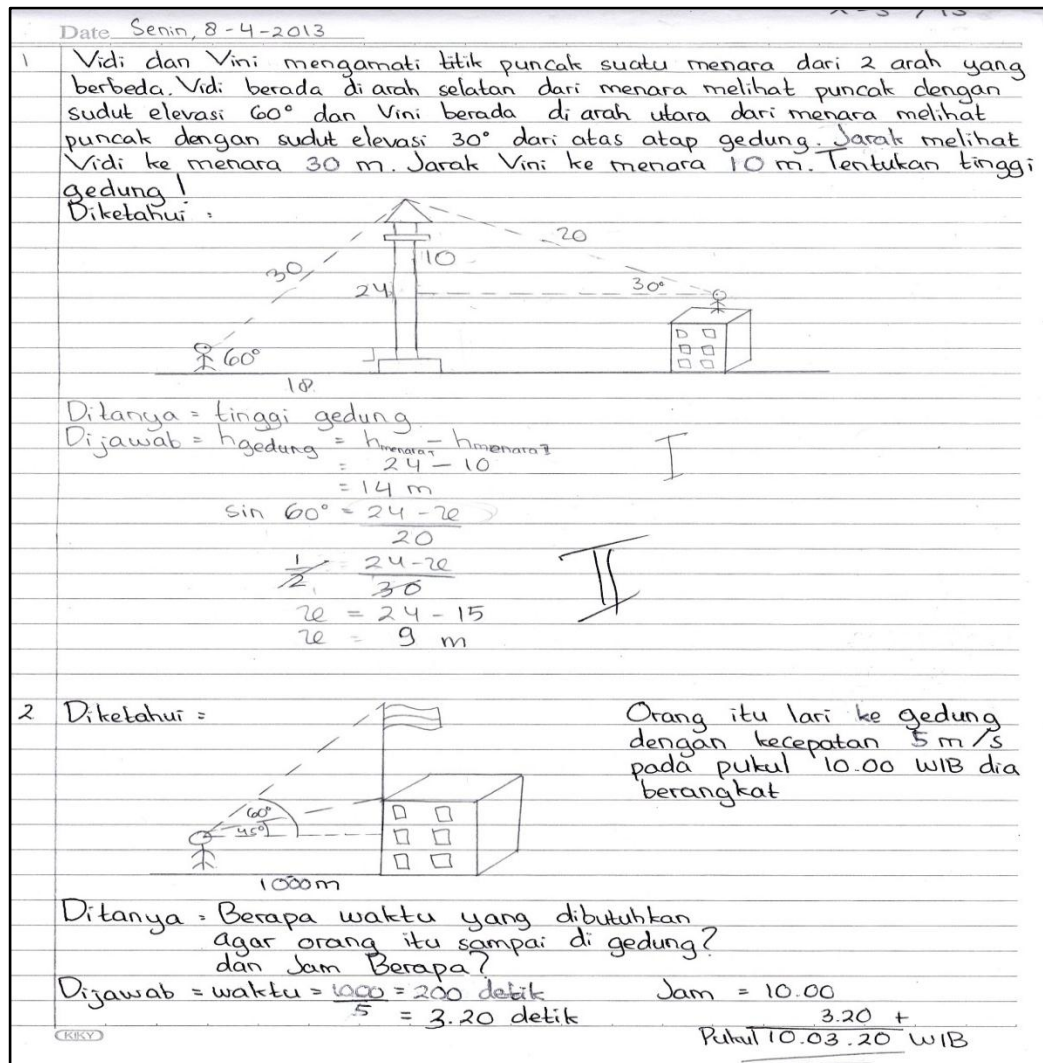 Date Senin, 8-4-2013
1 Vidi dan Vini mengamati titik puncak suatu menara dari 2 arah yang
berbeda. Vidi berada di arah selatan dari menara melihat puncak dengan
sudut elevasi 60° dan Vini berada di arah utara dari menara melihat
puncak dengan sudut elevasi 30° dari atas atap gedung. Jarak melihat
Vidi ke menara 30 m. Jarak Vini ke menara 10 m. Tentukan tinggi
gedung!
Diketahui :
30
60°
18
24
10
20
30°
Ditanya = tinggi gedung
Dijawab = h gedung = h menara1 - h menara2
= 24 - 10
= 14 m
I
sin 60° = 24 - x / 20
1/2 = 24 - x / 30
x = 24 - 15
x = 9 m
II
2 Diketahui =
60°
45°
1000 m
Orang itu lari ke gedung
dengan kecepatan 5 m/s
pada pukul 10.00 WIB dia
berangkat
Ditanya = Berapa waktu yang dibutuhkan
agar orang itu sampai di gedung?
dan Jam Berapa?
Dijawab = waktu = 1000 / 5 = 200 detik
= 3.20 detik
Jam = 10.00
3.20 +
Pukul 10.03.20 WIB
KIKY